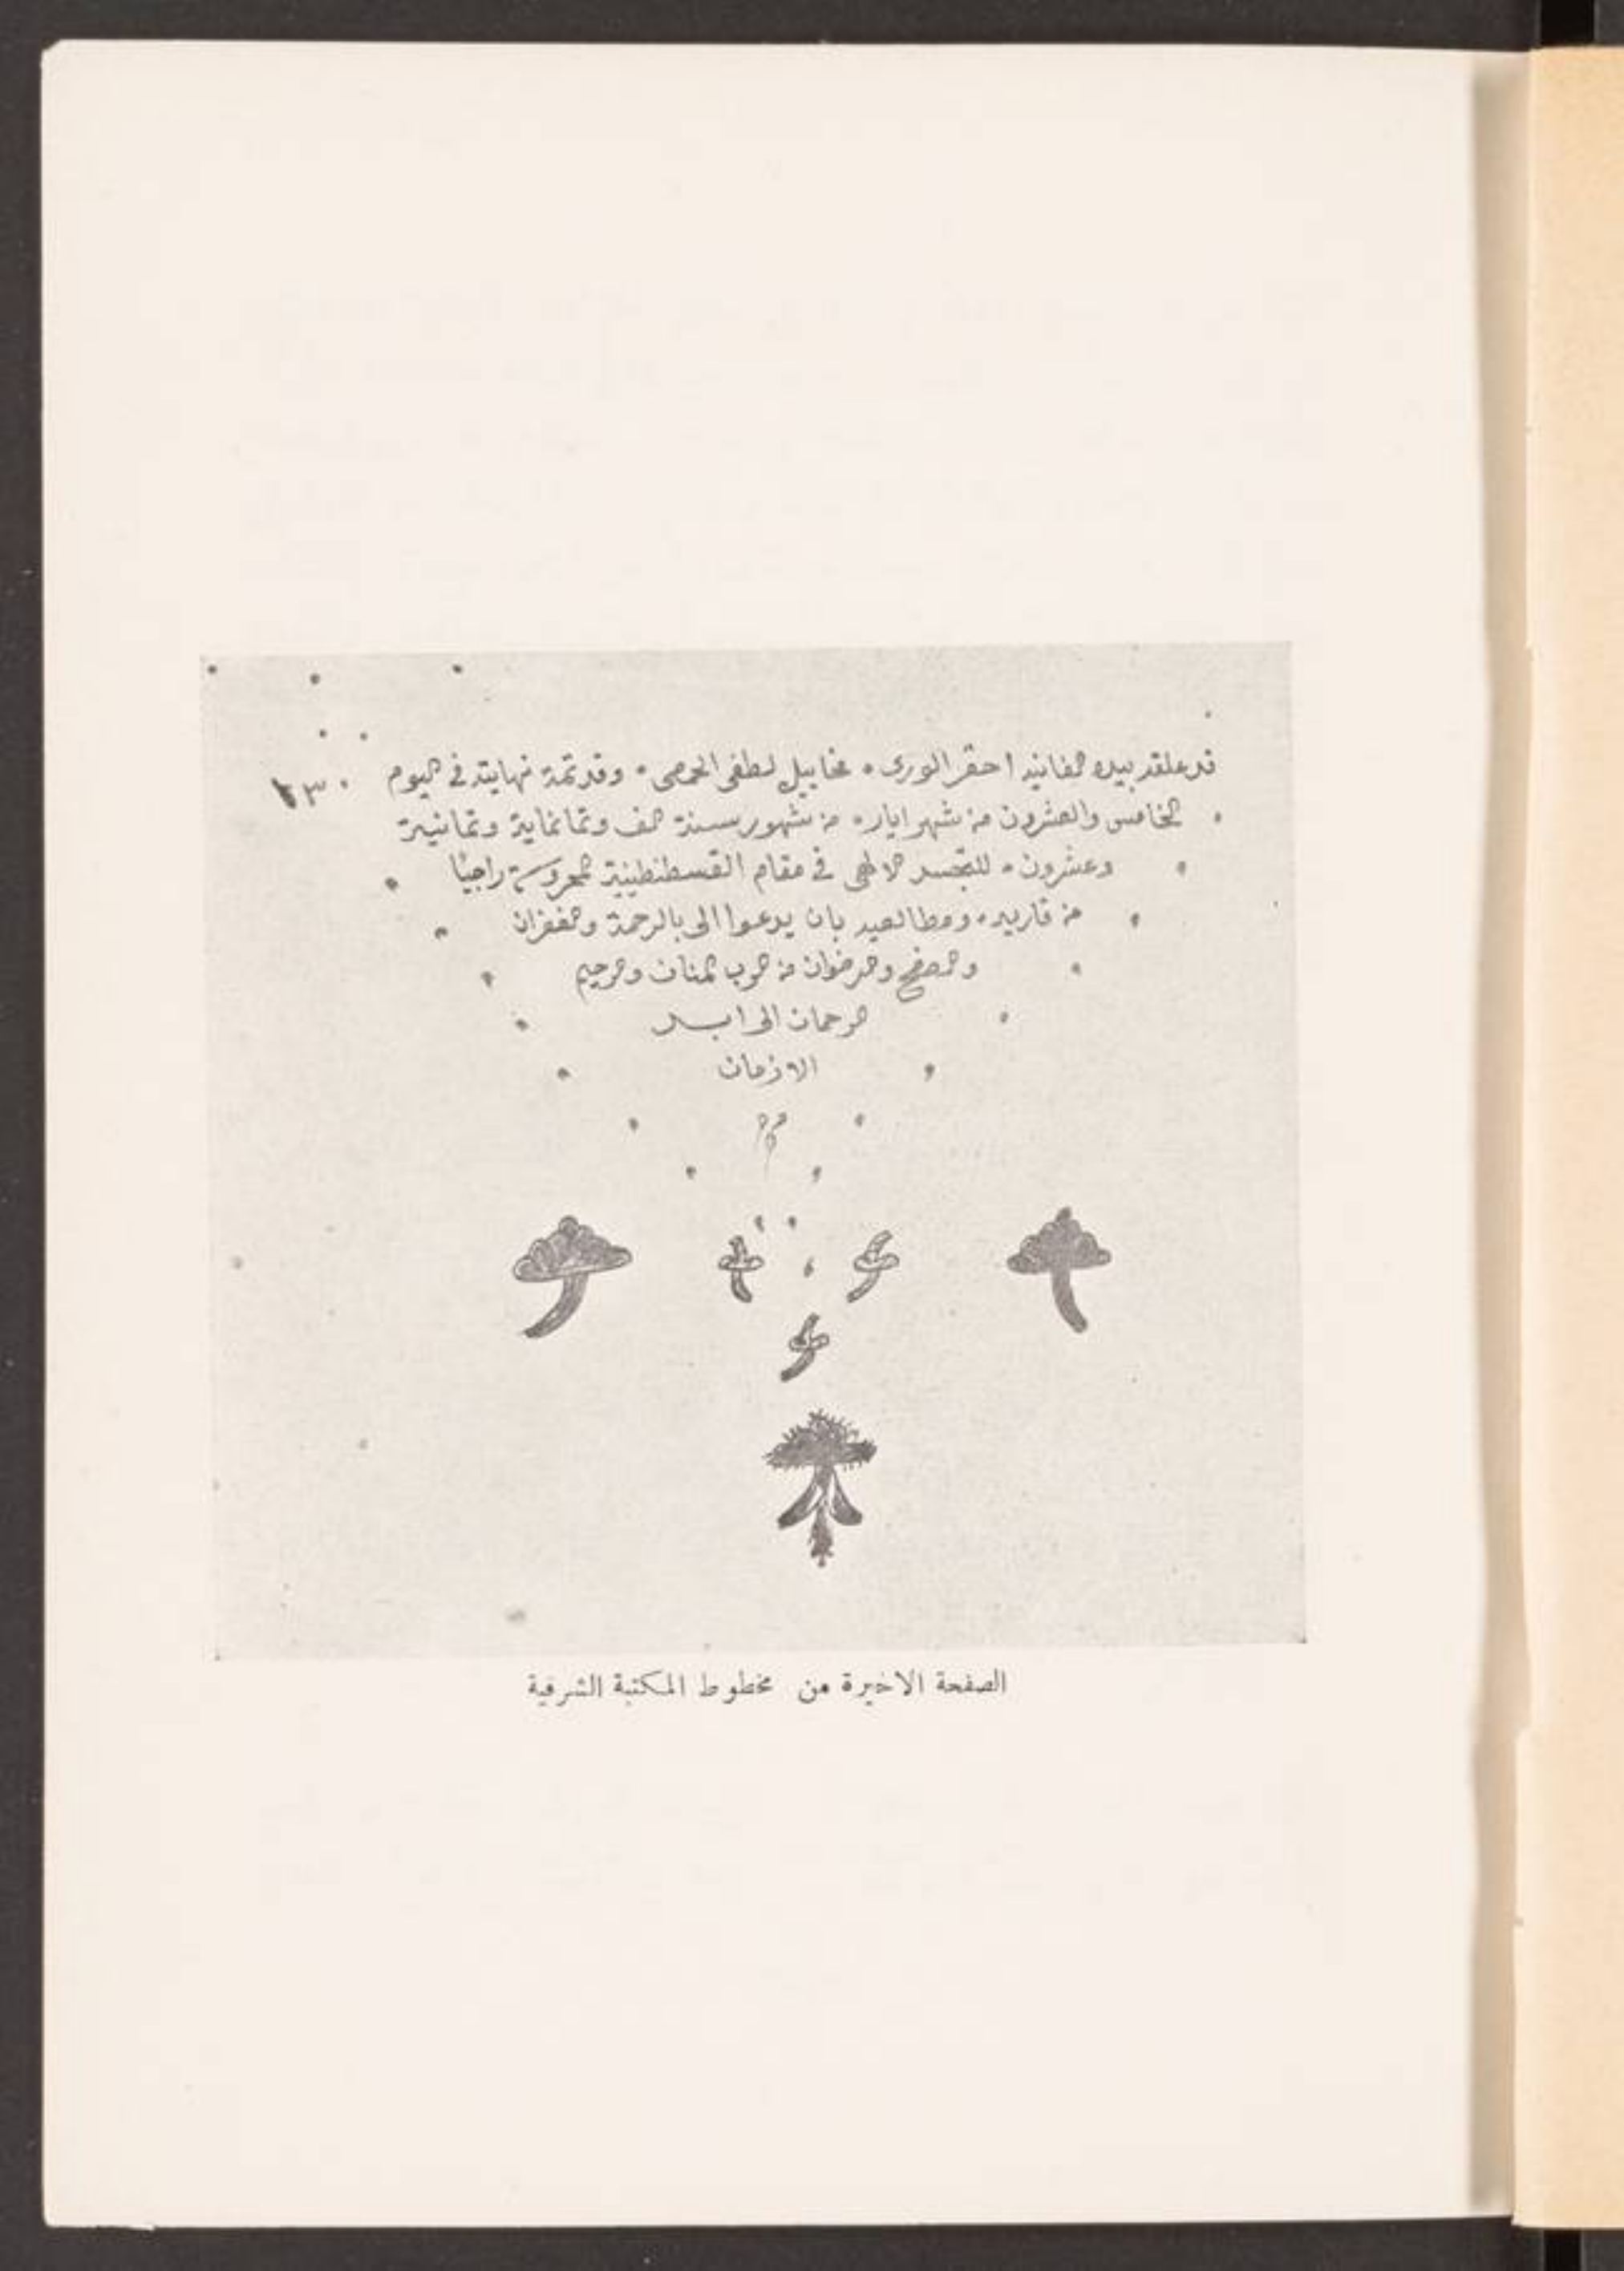 قد علقه بيده الفانيه احقر الورى • مخاييل لطفى الحمصى • وقد تمة نهايته في اليوم
الخامس والعشرون من شهر ايار • من شهور سنة الف وثمانماية وثمانية
وعشرون • للتجسد الالهى في مقام القسطنطينية المحروسة راجيًا
من قاريه • ومطالعيه بان يدعوا الى بالرحمة والغفران
والصفح والرضوان من الرب المنان والرحيم
الرحمان الى ابد
الازمان
الصفحة الاخيرة من مخطوط المكتبة الشرقية